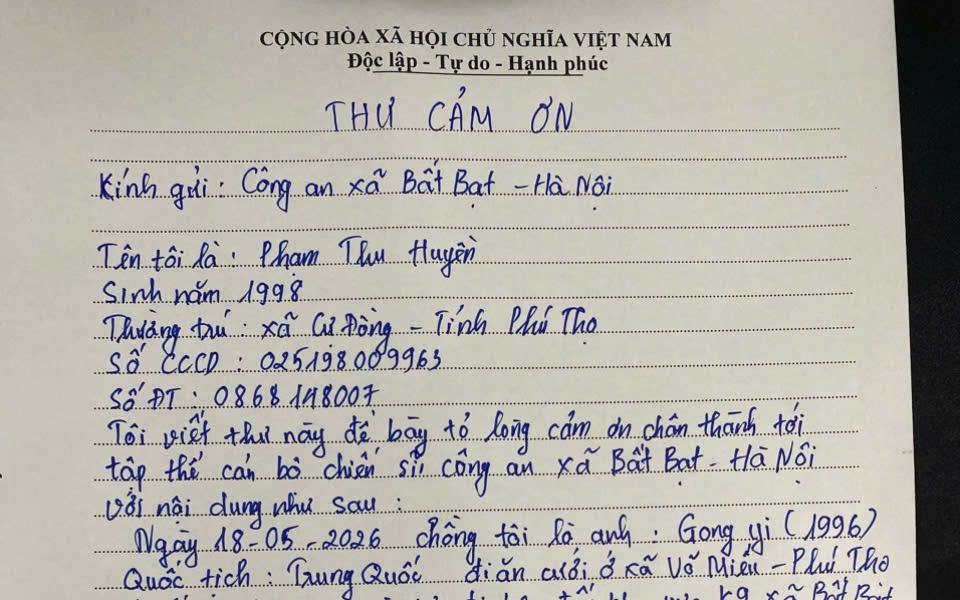 CỘNG HÒA XÃ HỘI CHỦ NGHĨA VIỆT NAM
Độc lập - Tự do - Hạnh phúc
THƯ CẢM ƠN
Kính gửi : Công an xã Bất Bạt - Hà Nội
Tên tôi là : Phạm Thu Huyền
Sinh năm 1998
Thường trú : xã Cự Đồng - Tỉnh Phú Thọ
Số CCCD : 025198009963
Số ĐT : 0868148007
Tôi viết thư này để bày tỏ lòng cảm ơn chân thành tới
tập thể cán bộ chiến sĩ công an xã Bất Bạt - Hà Nội
với nội dung như sau :
Ngày 18-05-2026 chồng tôi là anh : Gong yi (1996)
Quốc tịch : Trung Quốc đi ăn cưới ở xã Võ Miếu - Phú Thọ
xã Bất Bạt